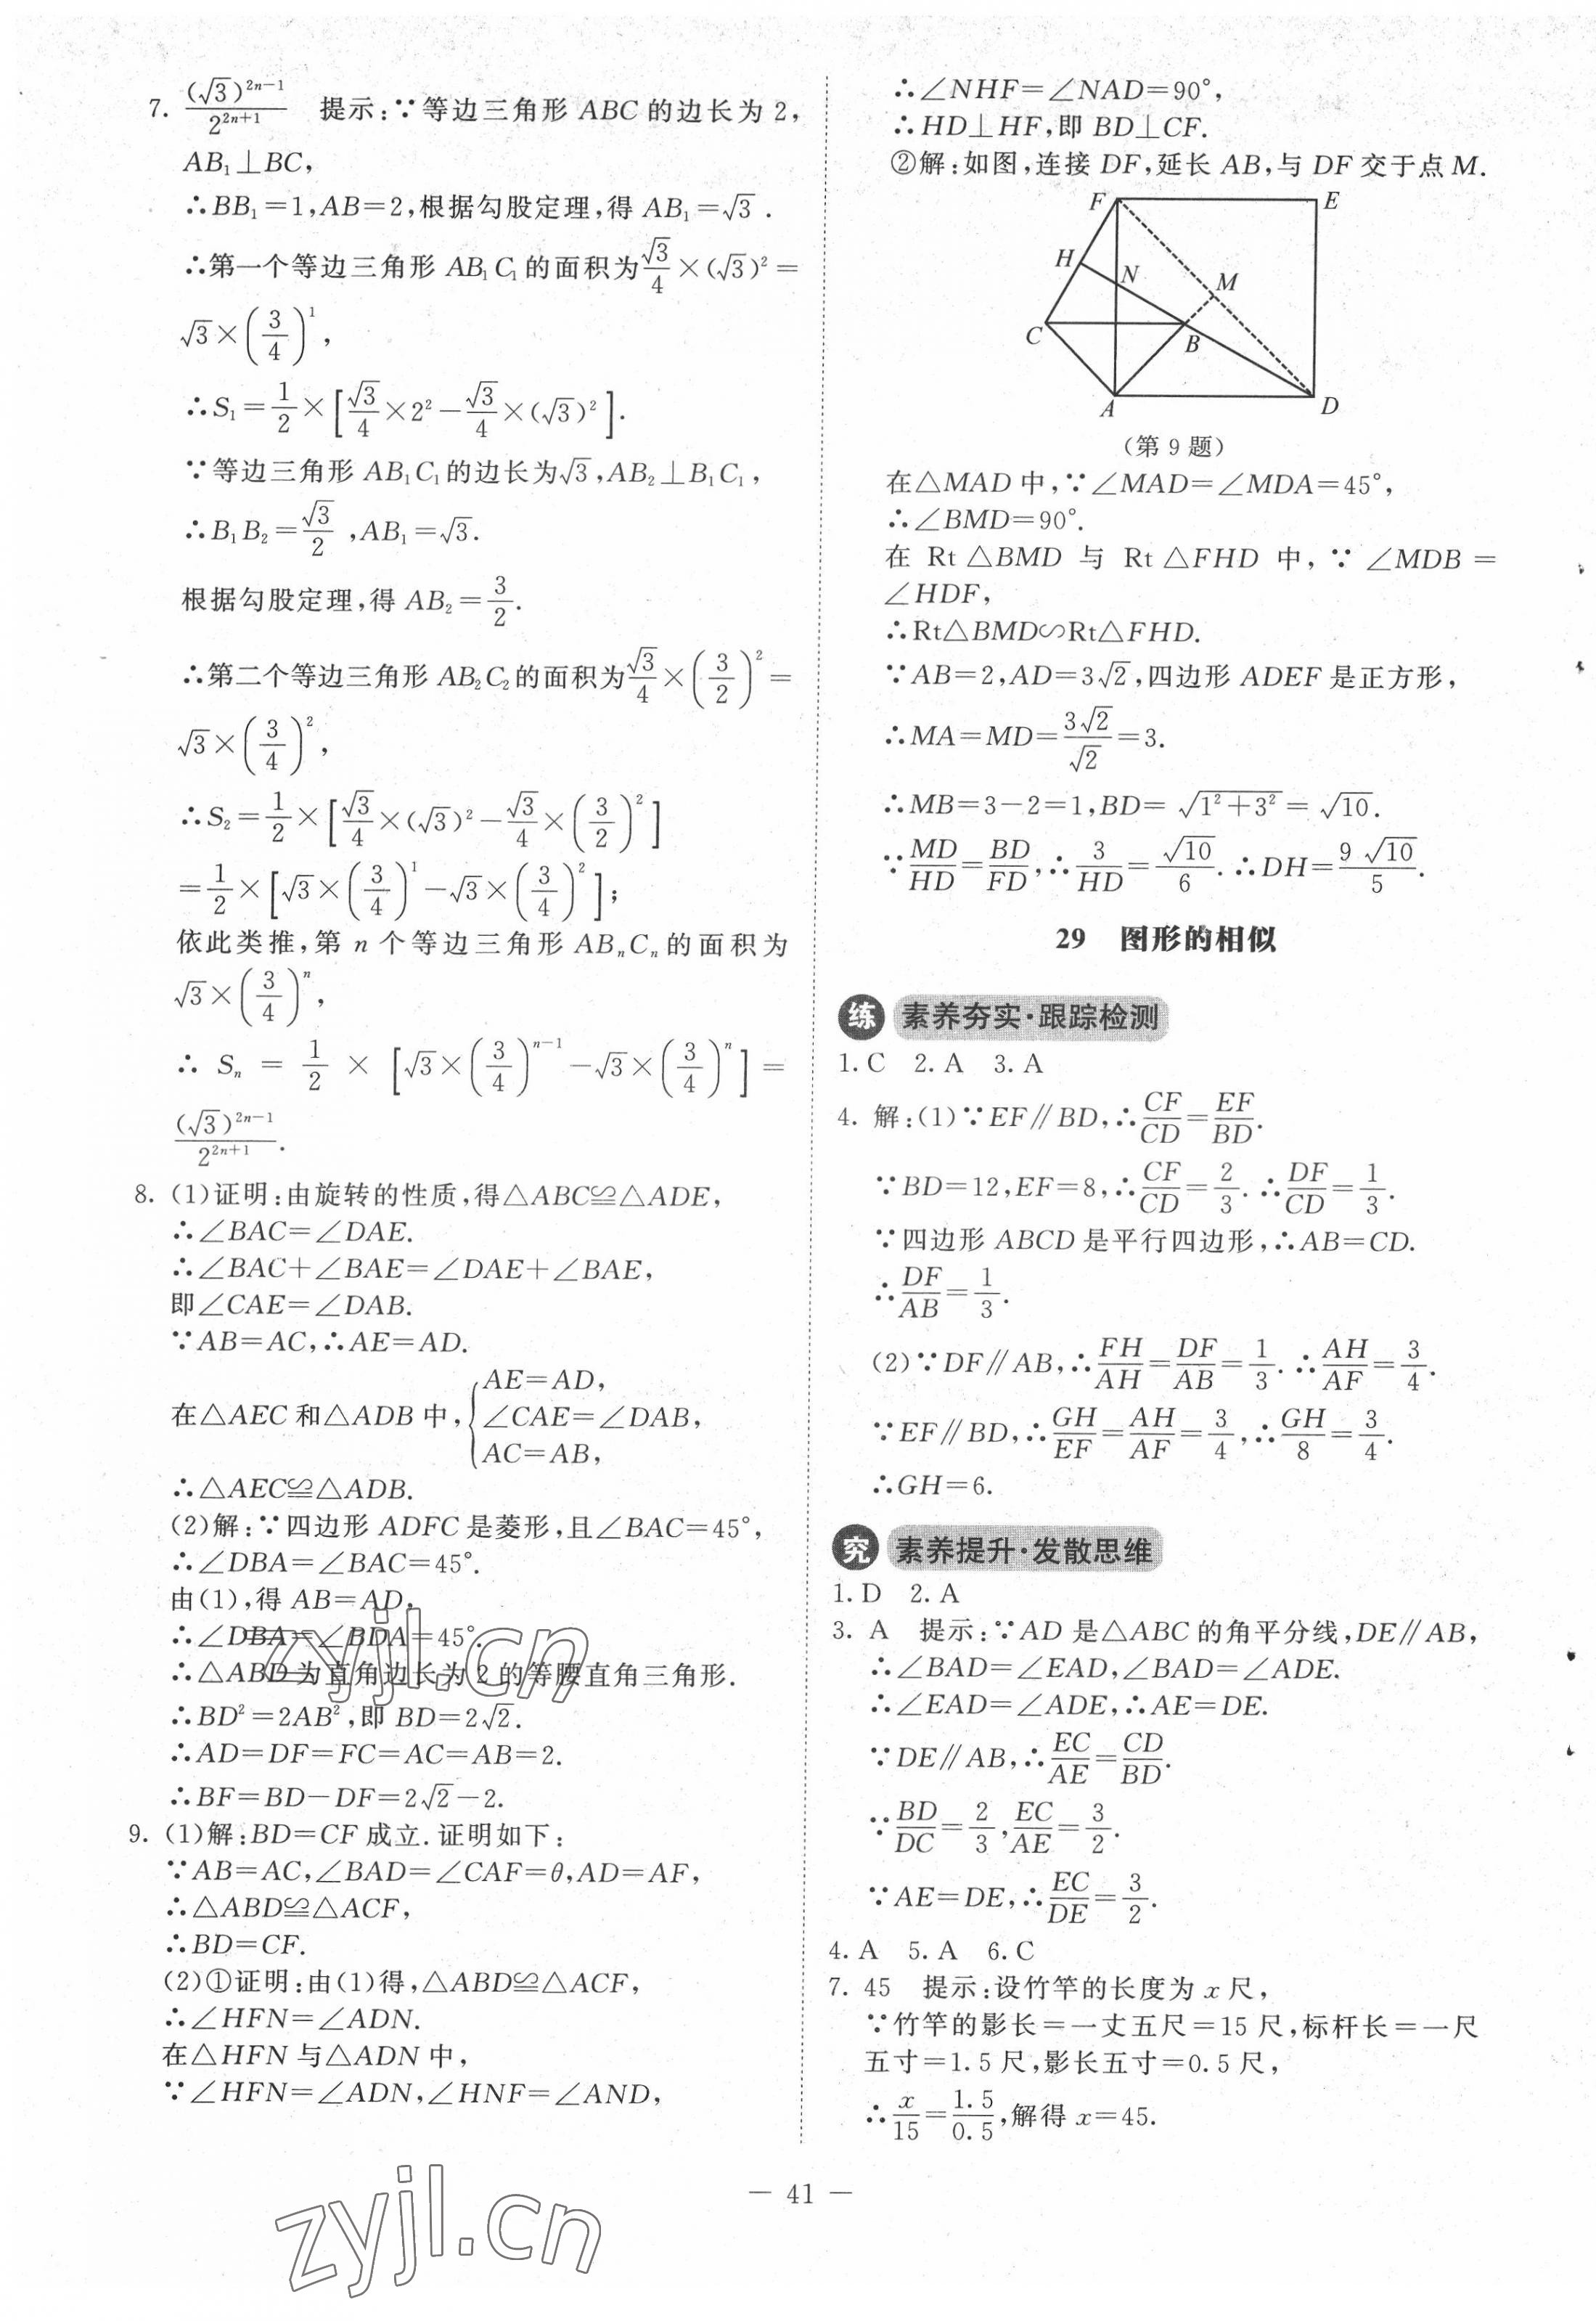 7. (√3)²ⁿ⁻¹/2²ⁿ⁺¹ 提示:∵等边三角形 ABC 的边长为 2,
AB₁⊥BC,
∴BB₁=1,AB=2,根据勾股定理,得 AB₁=√3.
∴第一个等边三角形 AB₁C₁的面积为√3/4×(√3)²=
√3×(3/4)¹,
∴S₁=1/2×[√3/4×2²-√3/4×(√3)²].
∵等边三角形 AB₁C₁的边长为√3,AB₂⊥B₁C₁,
∴B₁B₂=√3/2,AB₁=√3.
根据勾股定理,得 AB₂=3/2.
∴第二个等边三角形 AB₂C₂的面积为√3/4×(3/2)²=
√3×(3/4)²,
∴S₂=1/2×[√3/4×(√3)²-√3/4×(3/2)²]
=1/2×[√3×(3/4)¹-√3×(3/4)²];
依此类推,第 n 个等边三角形 ABₙCₙ的面积为
√3×(3/4)ⁿ,
∴ Sₙ = 1/2 × [√3×(3/4)ⁿ⁻¹-√3×(3/4)ⁿ] =
(√3)²ⁿ⁻¹/2²ⁿ⁺¹.
8. (1)证明:由旋转的性质,得△ABC≌△ADE,
∴∠BAC=∠DAE.
∴∠BAC+∠BAE=∠DAE+∠BAE,
即∠CAE=∠DAB.
∵AB=AC,∴AE=AD.
在△AEC和△ADB中,{AE=AD,
∠CAE=∠DAB,
AC=AB,
∴△AEC≌△ADB.
(2)解:∵四边形 ADFC 是菱形,且∠BAC=45°,
∴∠DBA=∠BAC=45°.
由(1),得 AB=AD,
∴∠DBA=∠BDA=45°.
∴△ABD为直角边长为2的等腰直角三角形.
∴BD²=2AB²,即 BD=2√2.
∴AD=DF=FC=AC=AB=2.
∴BF=BD-DF=2√2-2.
9. (1)解:BD=CF 成立.证明如下:
∵AB=AC,∠BAD=∠CAF=θ,AD=AF,
∴△ABD≌△ACF,
∴BD=CF.
(2)①证明:由(1)得,△ABD≌△ACF,
∴∠HFN=∠ADN.
在△HFN与△ADN中,
∵∠HFN=∠ADN,∠HNF=∠AND,
∴∠NHF=∠NAD=90°,
∴HD⊥HF,即 BD⊥CF.
②解:如图,连接 DF,延长 AB,与 DF 交于点 M.
F E
H
N
M
C
B
A D
(第 9 题)
在△MAD中,∵∠MAD=∠MDA=45°,
∴∠BMD=90°.
在 Rt△BMD 与 Rt△FHD 中,∵∠MDB=
∠HDF,
∴Rt△BMD∽Rt△FHD.
∵AB=2,AD=3√2,四边形 ADEF 是正方形,
∴MA=MD=3√2/√2=3.
∴MB=3-2=1,BD=√(1²+3²)=√10.
∵MD/HD=BD/FD,∴3/HD=√10/6.∴DH=9√10/5.
29 图形的相似
练 素养夯实·跟踪检测
1. C 2. A 3. A
4. 解:(1)∵EF∥BD,∴CF/CD=EF/BD.
∵BD=12,EF=8,∴CF/CD=2/3.∴DF/CD=1/3.
∵四边形 ABCD 是平行四边形,∴AB=CD.
∴DF/AB=1/3.
(2)∵DF∥AB,∴FH/AH=DF/AB=1/3.∴AH/AF=3/4.
∵EF∥BD,∴GH/EF=AH/AF=3/4,∴GH/8=3/4.
∴GH=6.
究 素养提升·发散思维
1. D 2. A
3. A 提示:∵AD 是△ABC 的角平分线,DE∥AB,
∴∠BAD=∠EAD,∠BAD=∠ADE.
∴∠EAD=∠ADE,∴AE=DE.
∵DE∥AB,∴EC/AE=CD/BD.
∵BD/DC=2/3,EC/AE=3/2.
∵AE=DE,∴EC/DE=3/2.
4. A 5. A 6. C
7. 45 提示:设竹竿的长度为 x 尺,
∵竹竿的影长=一丈五尺=15 尺,标杆长=一尺
五寸=1.5 尺,影长五寸=0.5 尺,
∴x/15=1.5/0.5,解得 x=45.
— 41 —
zyjl.cn
zyjl.cn